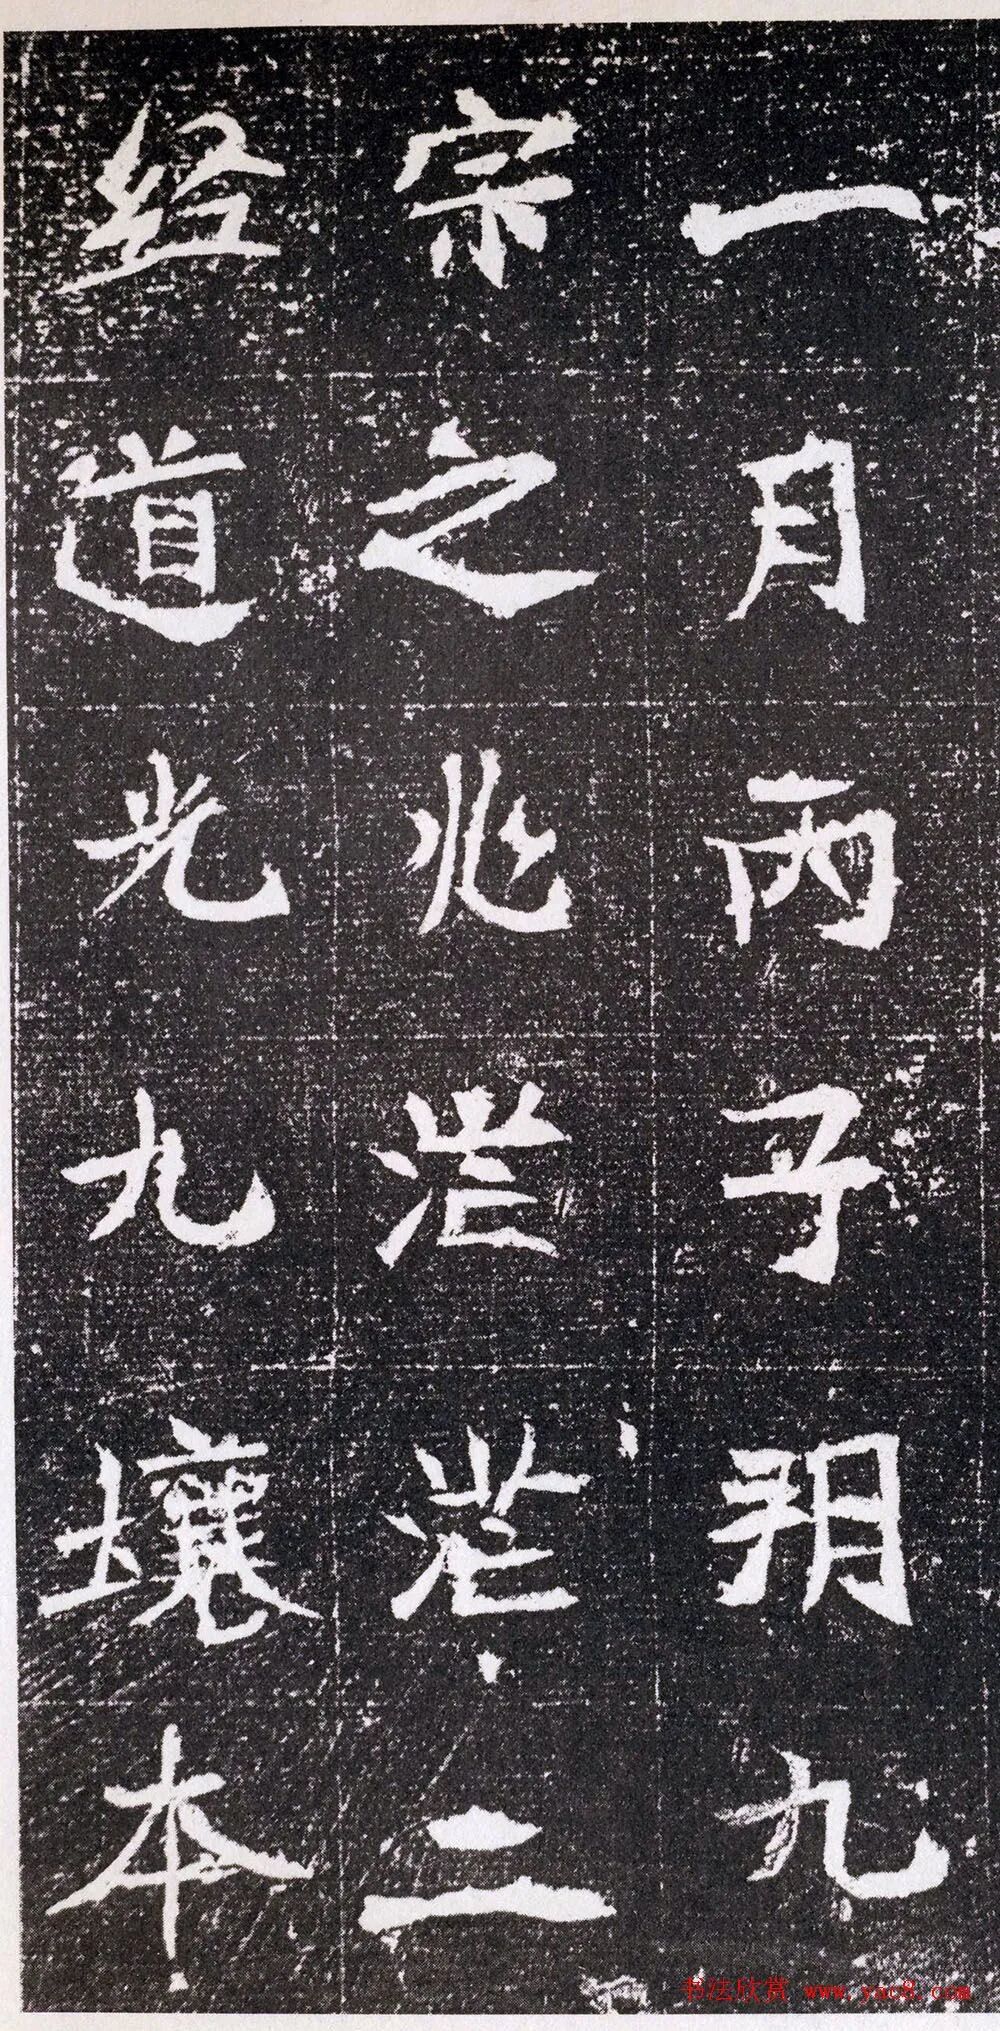 一月丙子朔九
宗之兆茫茫二
经道光九壤本
书法欣赏 www.yac8.com